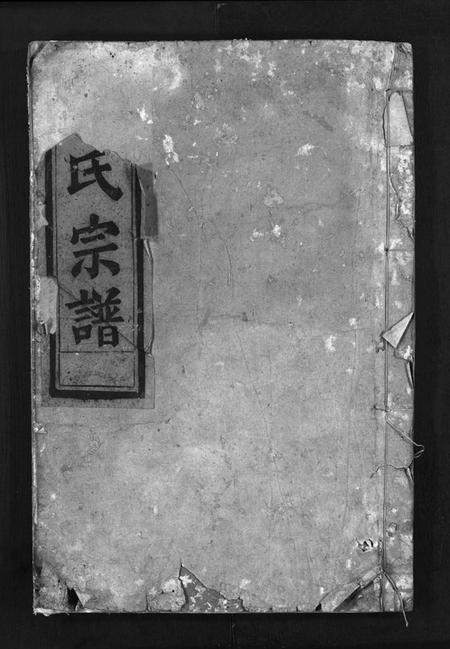 氏宗譜